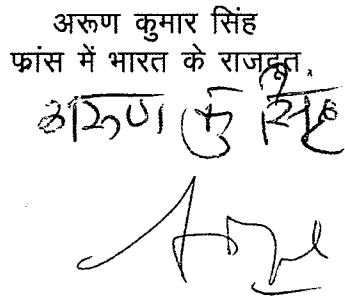 अरूण कुमार सिंह
फ्रांस में भारत के राजदूत
अरूण कु सिंह